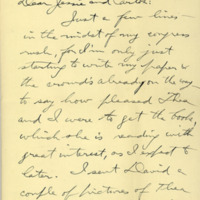 Dear Jessie and Carter:
Just a few lines –
in the midst of my congress
rush, for I'm only just
starting to write my paper &
the crowd's already on the way
to say how pleased Thea
and I were to get the book,
which she is reading with
great interest, as I expect to
later. I sent David a
couple of pictures of Thea